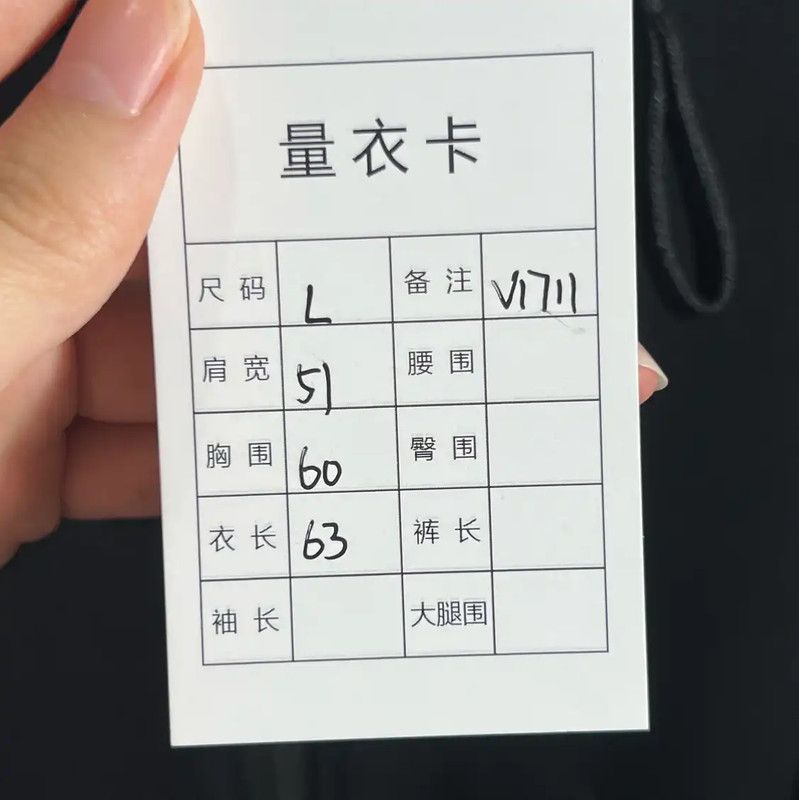 量衣卡
尺码 L 备注 V1711
肩宽 51 腰围
胸围 60 臀围
衣长 63 裤长
袖长 大腿围